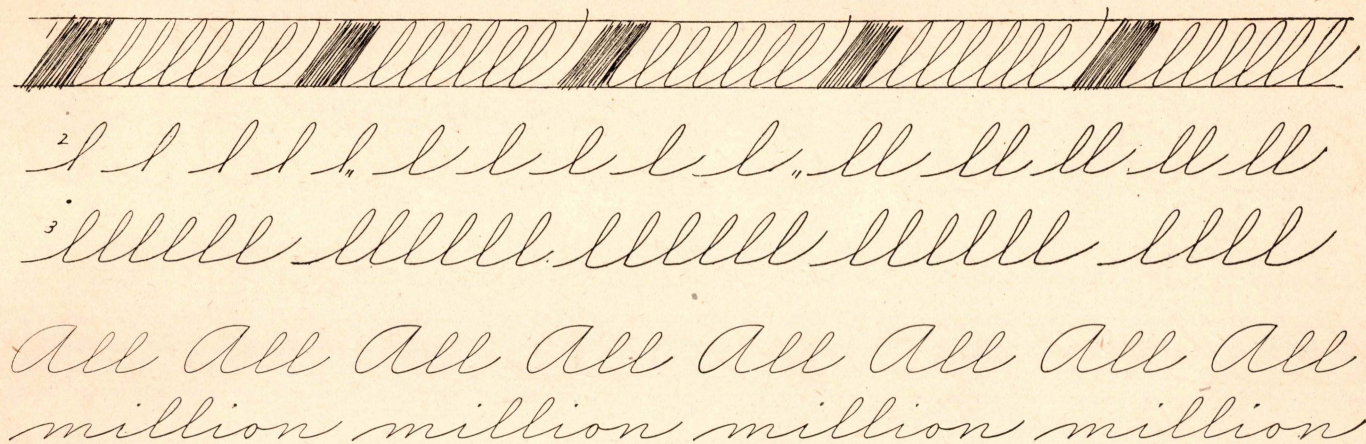 1 lllllll lllllll lllllll lllllll lllllll
2 l l l l l,, l l l l l,, ll ll ll ll ll
3 lllllll lllllll lllllll llllll llll
All All All All All All All All
million million million million